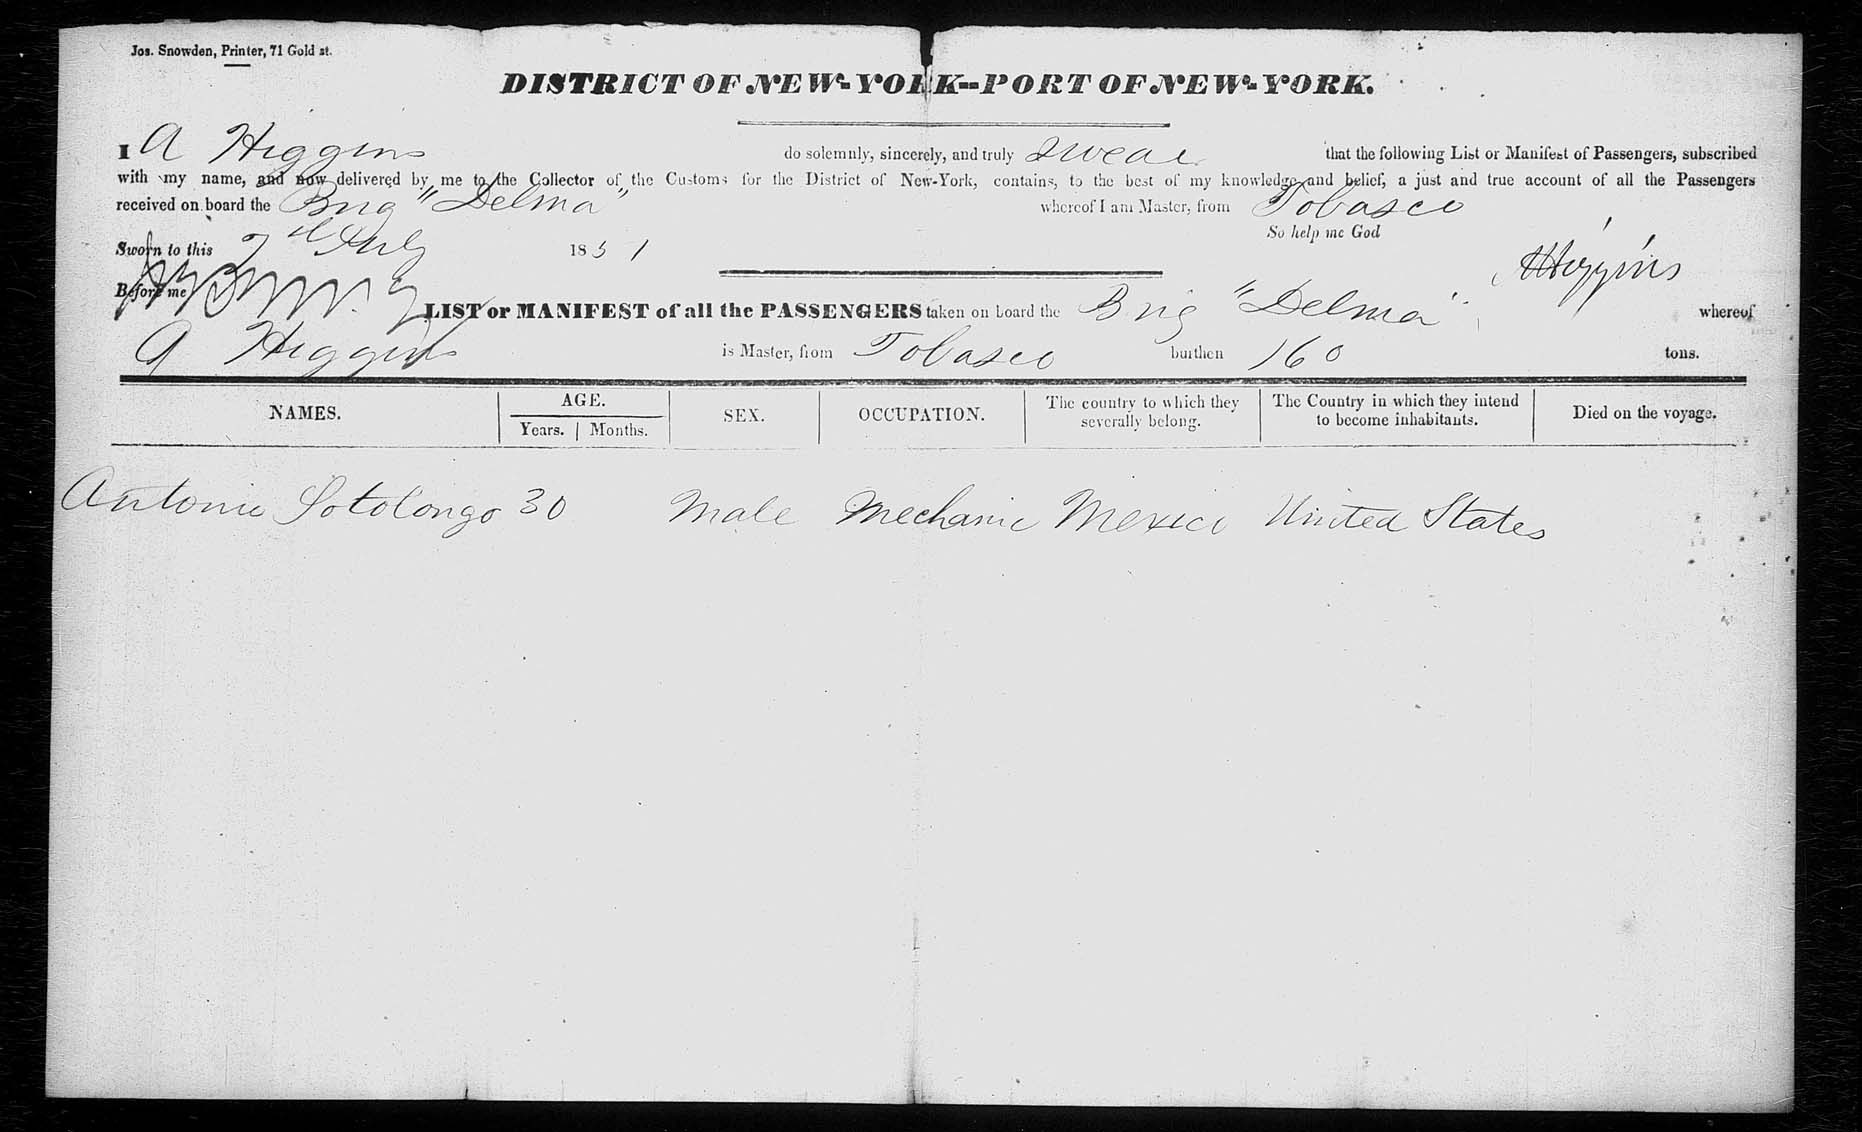 Jos. Snowden, Printer, 71 Gold st.
DISTRICT OF NEW-YORK--PORT OF NEW-YORK.
I A Higgins do solemnly, sincerely, and truly swear that the following List or Manifest of Passengers, subscribed
with my name, and now delivered by me to the Collector of the Customs for the District of New-York, contains, to the best of my knowledge and belief, a just and true account of all the Passengers
received on board the Brig "Delma" whereof I am Master, from Tobasco
So help me God
Sworn to this July 1851
A Higgins
Before me
LIST or MANIFEST of all the PASSENGERS taken on board the Brig "Delma" whereof
A Higgins is Master, from Tobasco burthen 160 tons.
NAMES. AGE. Years. Months. SEX. OCCUPATION. The country to which they severally belong. The Country in which they intend to become inhabitants. Died on the voyage.
Antonio Sotolongo 30 Male Mechanic Mexico United States